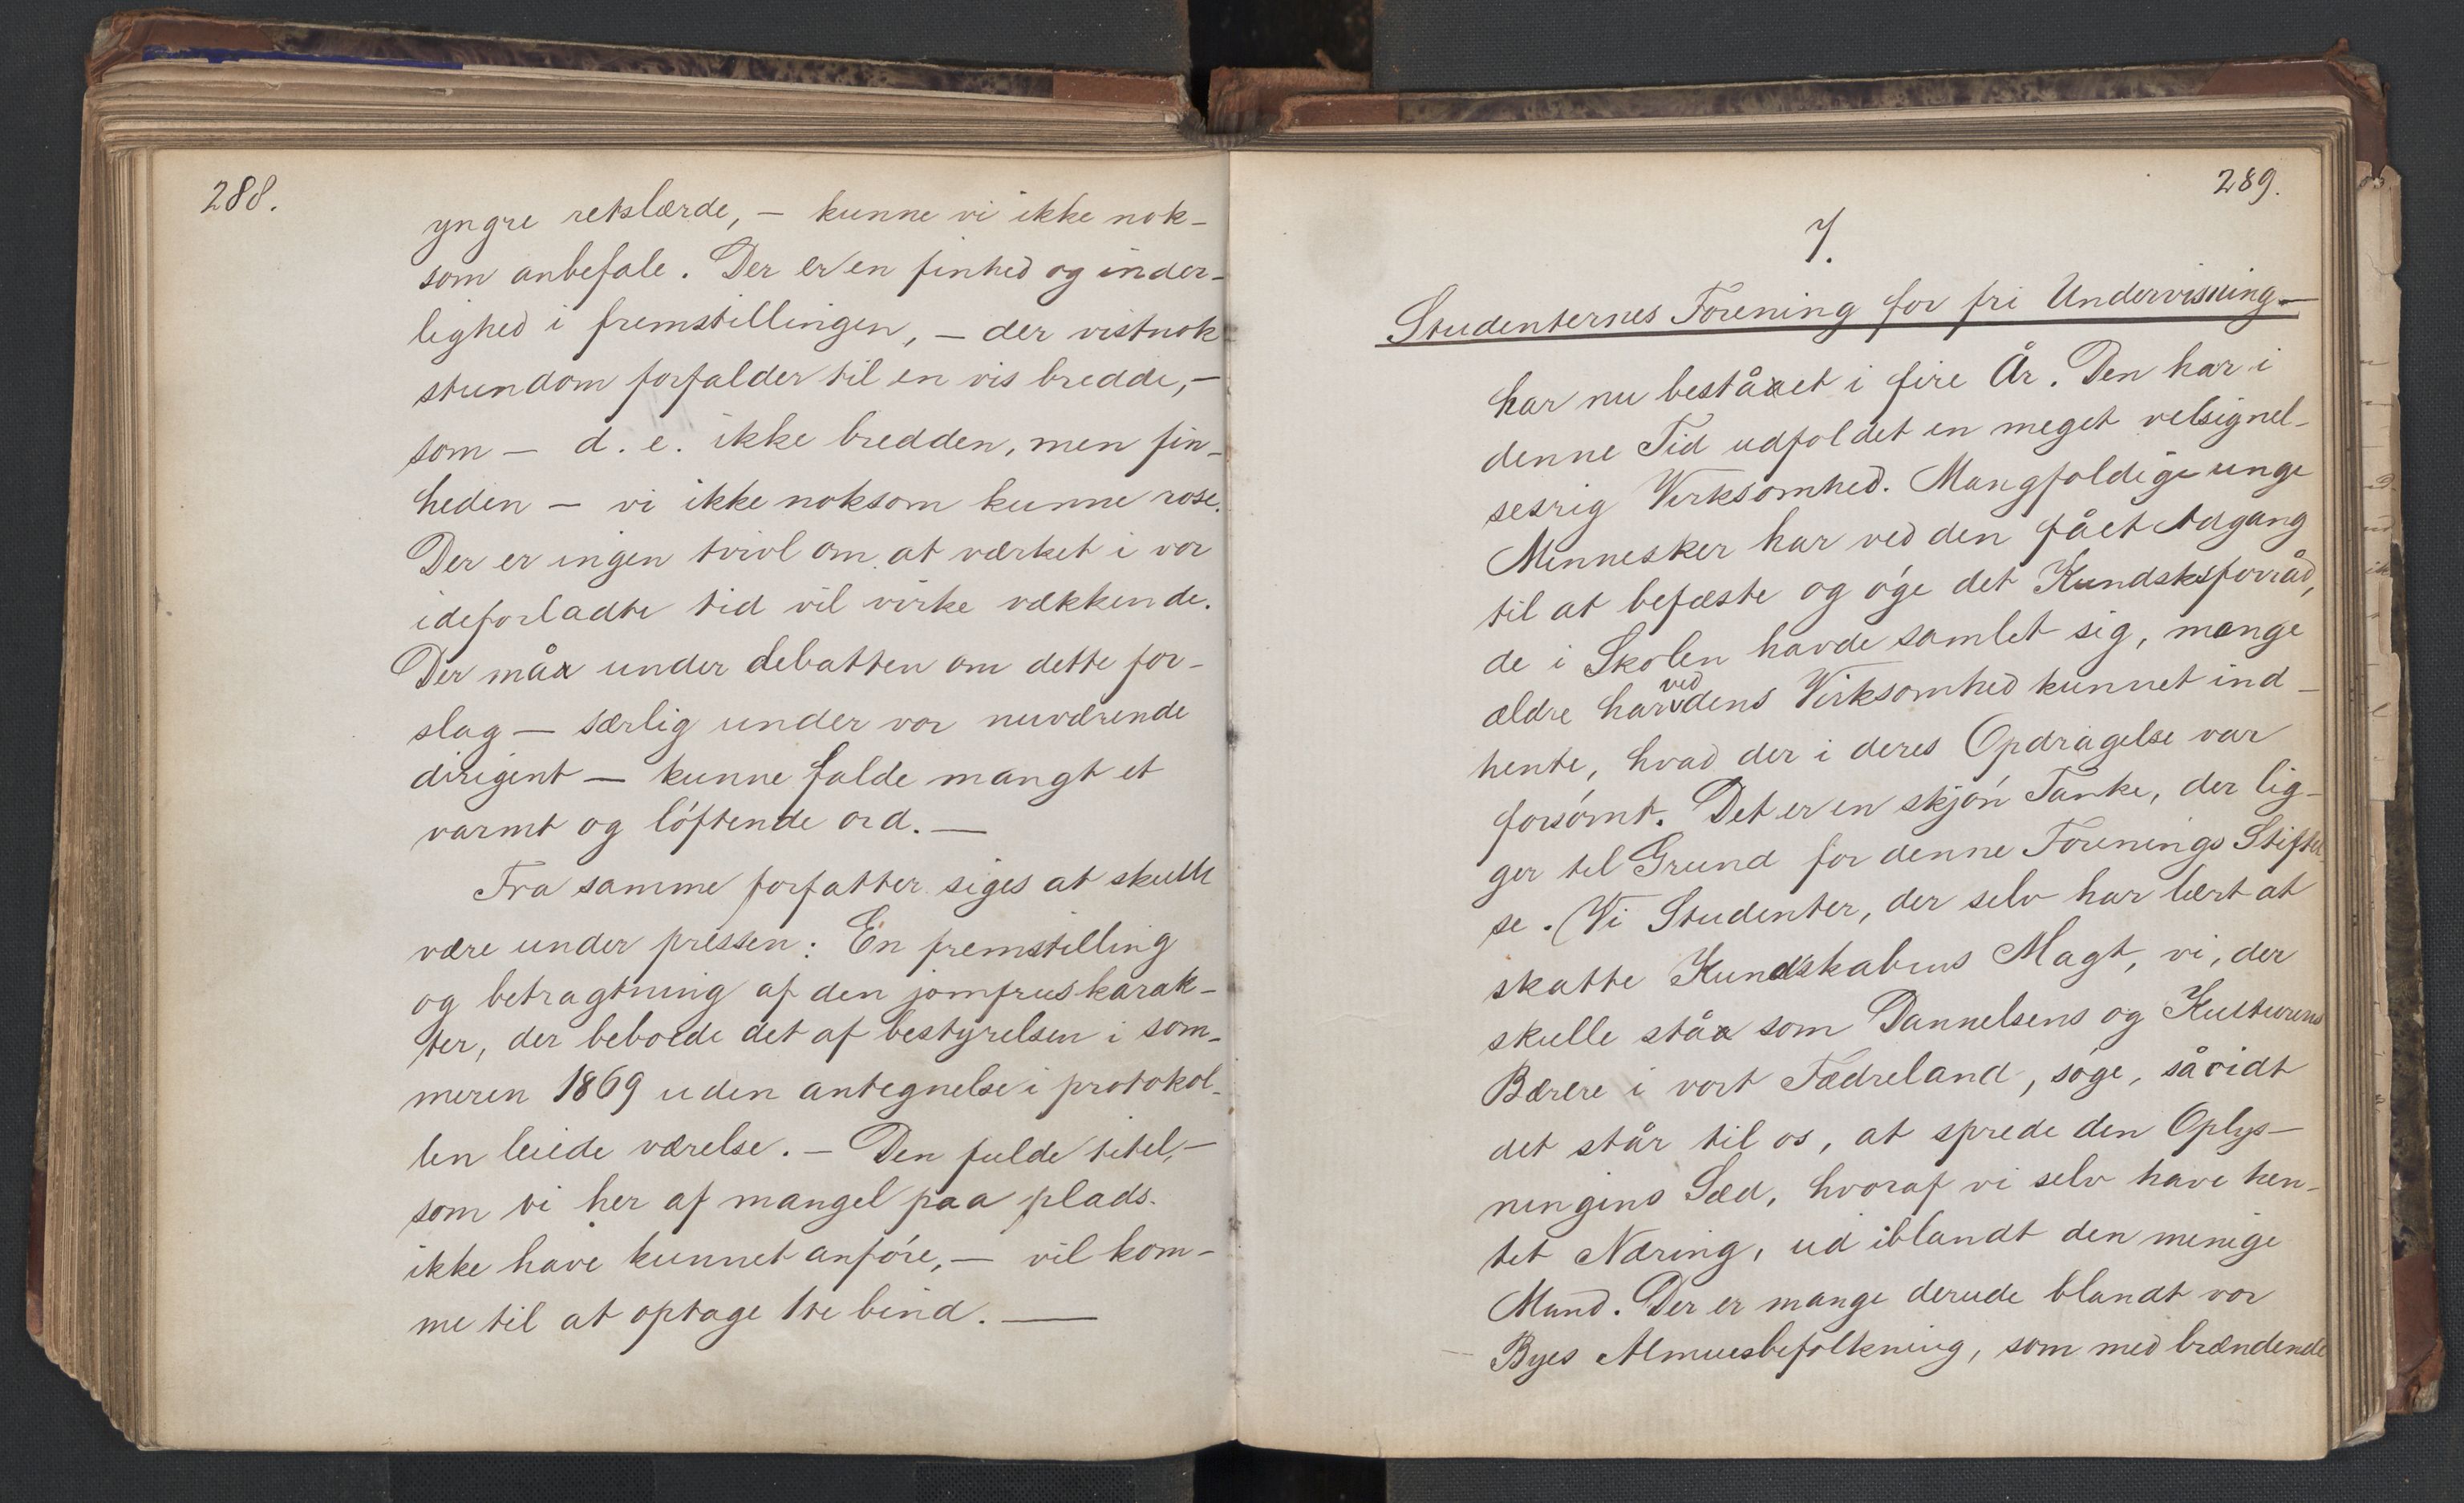 288.
yngre retslærde, — kunne vi ikke nok-
som anbefale. Der er en finhed og inder-
lighed i fremstillingen, — der vistnok
stundom forfalder til en vis bredde, —
som — d. e. ikke bredden, men fin-
heden — vi ikke noksom kunne rose.
Der er ingen tvivl om at værket i vor
ideforladte tid vil virke vækkende.
Der måa under debatten om dette for-
slag — særlig under vor nuværende
dirigent — kunne falde mangt et
varmt og löftende ord. —
Fra samme forfatter siges at skulle
være under pressen: En fremstilling
og betragtning af den jomfrus karak-
ter, der beboede det af bestyrelsen i som-
meren 1869 uden antegnelse i protokol-
len leiede værelse. — Den fulde titel, —
som vi her af mangel paa plads
ikke have kunnet anföre, — vil kom-
me til at optage 1te bind. —
289.
7.
Studenternes Forening for fri Undervisning —
har nu beståaet i fire År. Den har i
denne Tid udfoldet en meget velsignel-
sesrig Virksomhed. Mangfoldige unge
Mennesker har ved den fået Adgang
til at befæste og öge det Kundsksforråd,
de i Skolen havde samlet sig, mange
ældre har ved dens Virksomhed kunnet ind-
hente, hvad der i deres Opdragelse var
forsömt. Det er en skjön Tanke, der lig-
ger til Grund for denne Forenings Stiftel
se. (Vi Studenter, der selv har lært at
skatte Kundskabens Magt, vi, der
skulle ståa som Dannelsens og Kulturens
Bærere i vort Fædreland, söge, såvidt
det står til os, at sprede den Oplys-
ningens Sæd, hvoraf vi selv have hen-
tet Næring, ud iblandt den menige
Mand. Der er mange derude blandt vor
Byes Almuesbefolkning, som med brændende